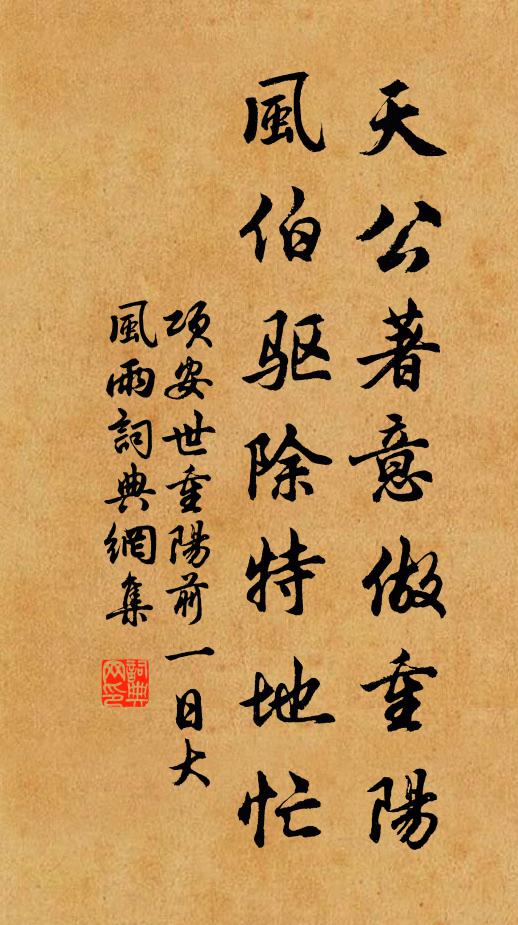 天公著意做重陽
風伯驱除特地忙
项安世重陽前一日大
風雨詞典網集
詞典
网印